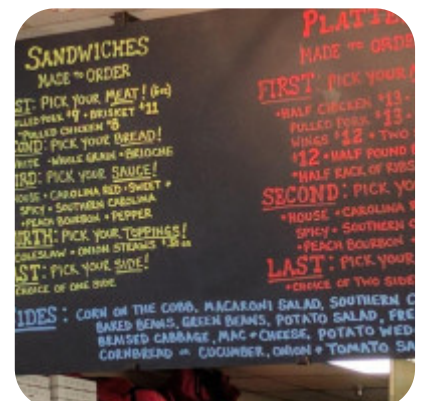 SANDWICHES
MADE TO ORDER
ST: PICK YOUR MEAT! (6oz)
PULLED PORK $9 • BRISKET $11
•PULLED CHICKEN $8
OND: PICK YOUR BREAD!
WHITE •WHOLE GRAIN •BRIOCHE
IRD: PICK YOUR SAUCE!
HOUSE • CAROLINA RED •SWEET •
SPICY • SOUTHERN CAROLINA
•PEACH BOURBON • PEPPER
URTH: PICK YOUR TOPPINGS!
COLESLAW • ONION STRAWS
ST: PICK YOUR SIDE!
CHOICE OF ONE SIDE
PLATTE
MADE TO ORDE
FIRST: PICK YOUR
•HALF CHICKEN $13 •
PULLED PORK $13 •
WINGS $12 • TWO
$12 •HALF POUND
•HALF RACK OF RIBS
SECOND: PICK YO
•HOUSE •CAROLINA R
SPICY • SOUTHERN C
•PEACH BOURBON •
LAST: PICK YOUR
•CHOICE OF TWO SIDE
IDES: CORN ON THE COBB, MACARONI SALAD, SOUTHERN C
BAKED BEANS, GREEN BEANS, POTATO SALAD, FRE
BRAISED CABBAGE, MAC + CHEESE, POTATO WED
CORNBREAD or CUCUMBER, ONION + TOMATO SA